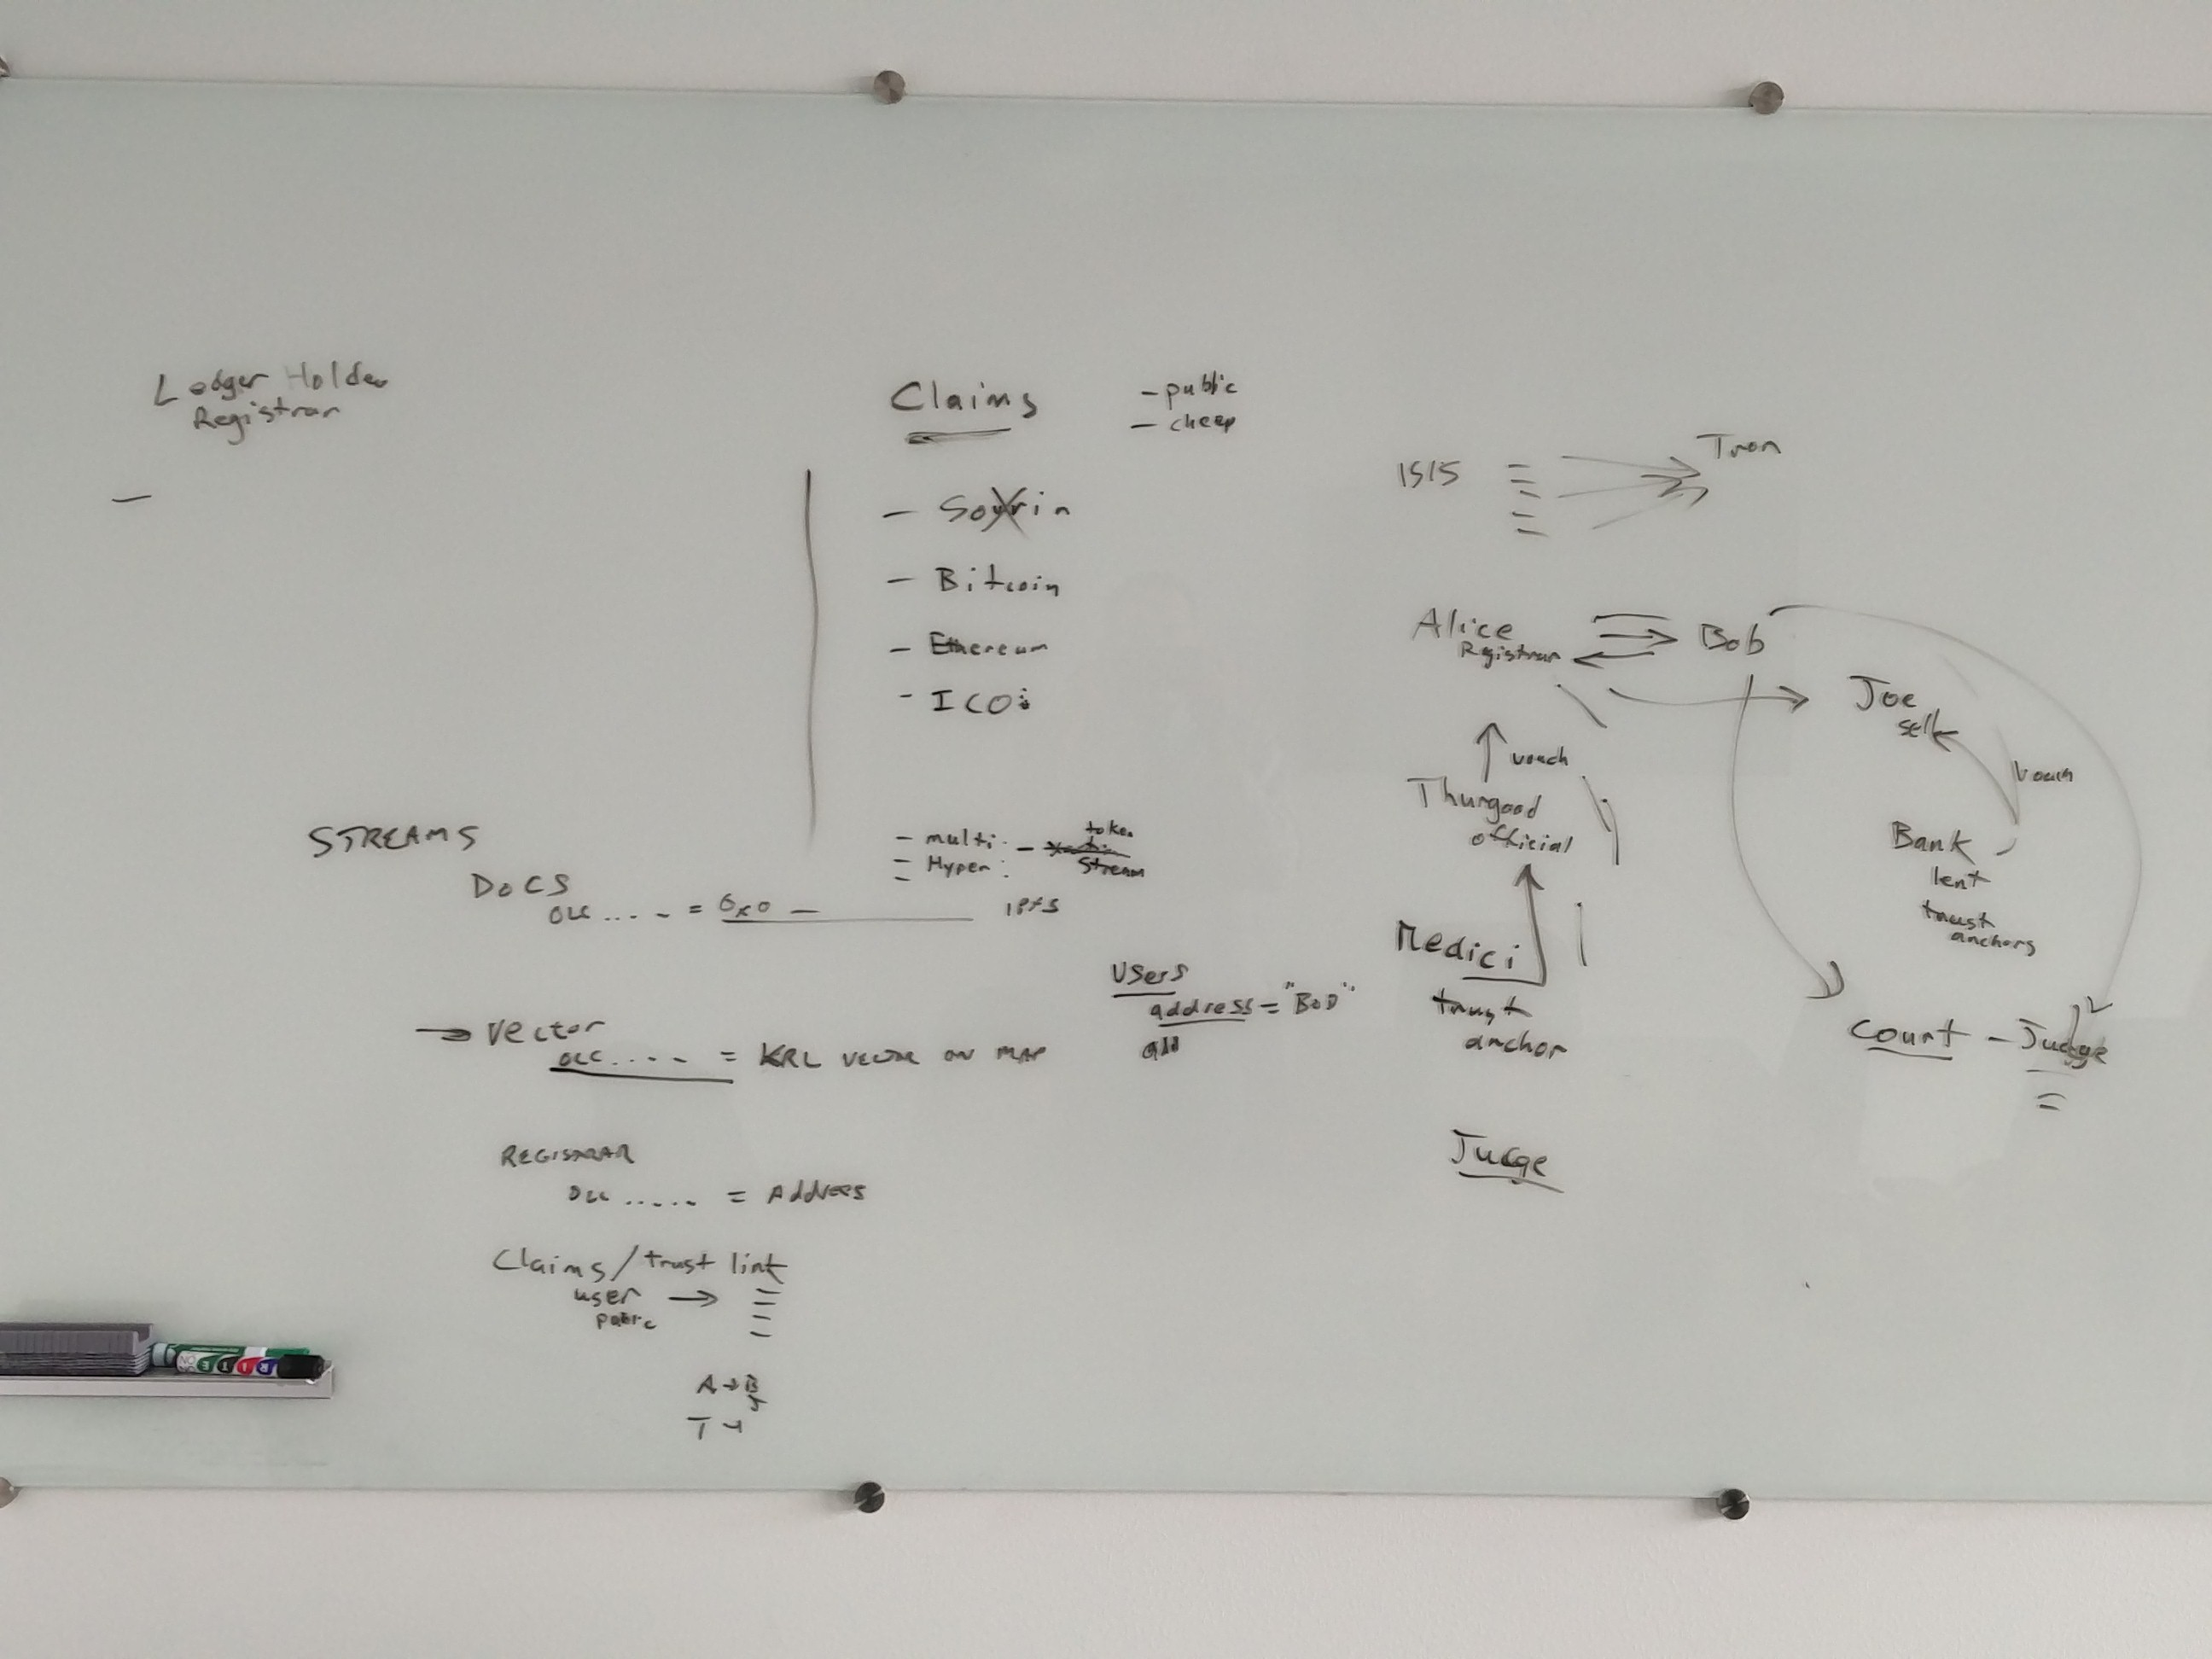 Ledger Holder
Registrar
—
Claims
- public
- cheap
- Bitcoin
- Ethereum
- ICO:
- multi: -
token
stream
= Hyper:
-
STREAMS
DOCS
OLC .... = 0x0 —
IPFS
→ Vector
OLC .... = KRL VECTOR ON MAP
Users
address = "BOD"
add
REGISTRAR
OLC ..... = Address
Claims / trust link
user →
public
A → B
J
T →
ISIS
Tron
Alice
Registrar
Bob
Joe
sell
vouch
Thurgood
official
vouch
Bank
lent
trust
anchors
Medici
trust
anchor
court - Judge
Judge